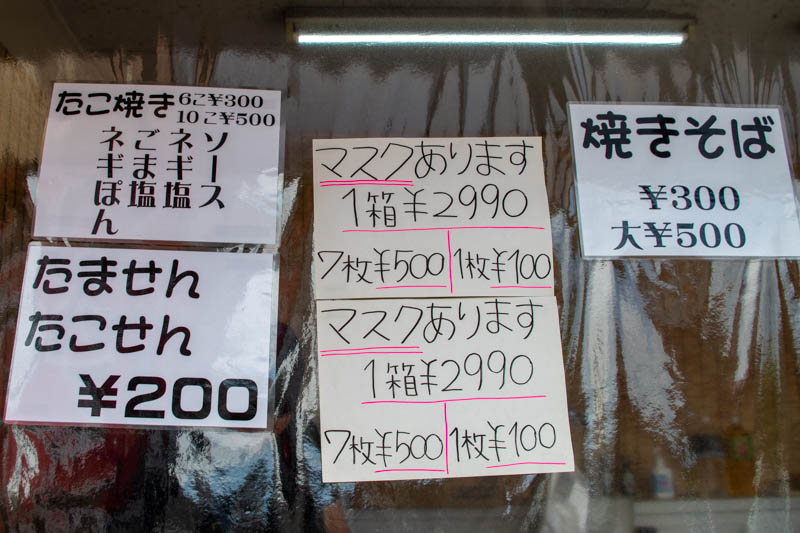 たこ焼き 6こ¥300
10こ¥500
ソース
ネギ塩
ごま塩
ネギぽん
たません
たこせん
¥200
マスクあります
1箱¥2990
7枚¥500 1枚¥100
マスクあります
1箱¥2990
7枚¥500 1枚¥100
焼きそば
¥300
大¥500